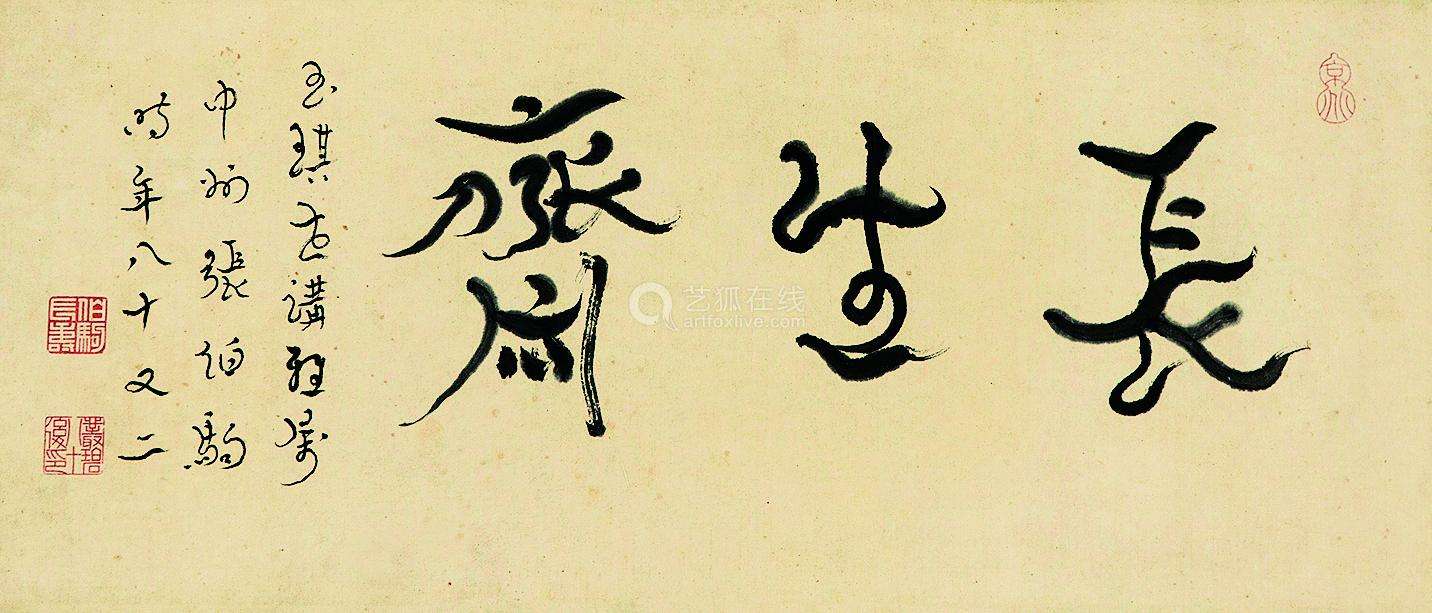 京兆
長生齋
玉琪世講雅屬
中州張伯駒
時年八十又二
伯駒長壽
叢碧八十後印
艺狐在线
artfoxlive.com